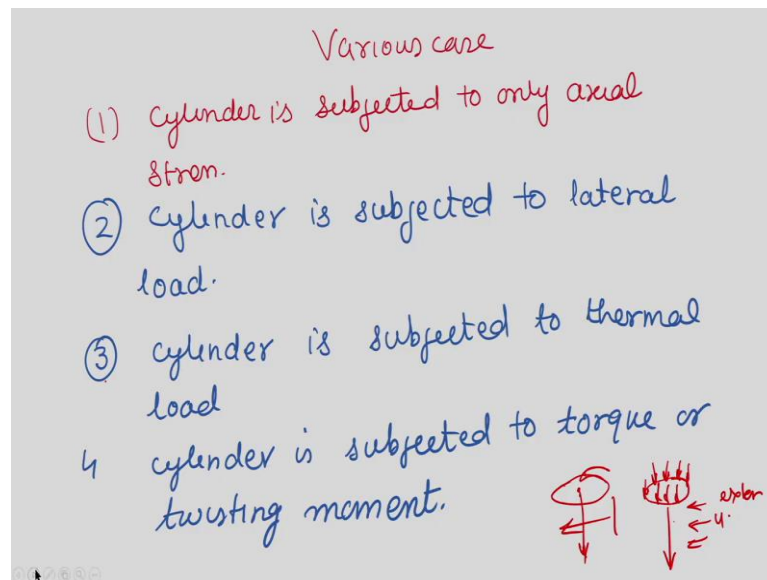 Various case
(1) Cylinder is subjected to only axial
stren.
(2) cylinder is subjected to lateral
load.
(3) cylinder is subjected to thermal
load
4 cylinder is subjected to torque or
twisting moment.